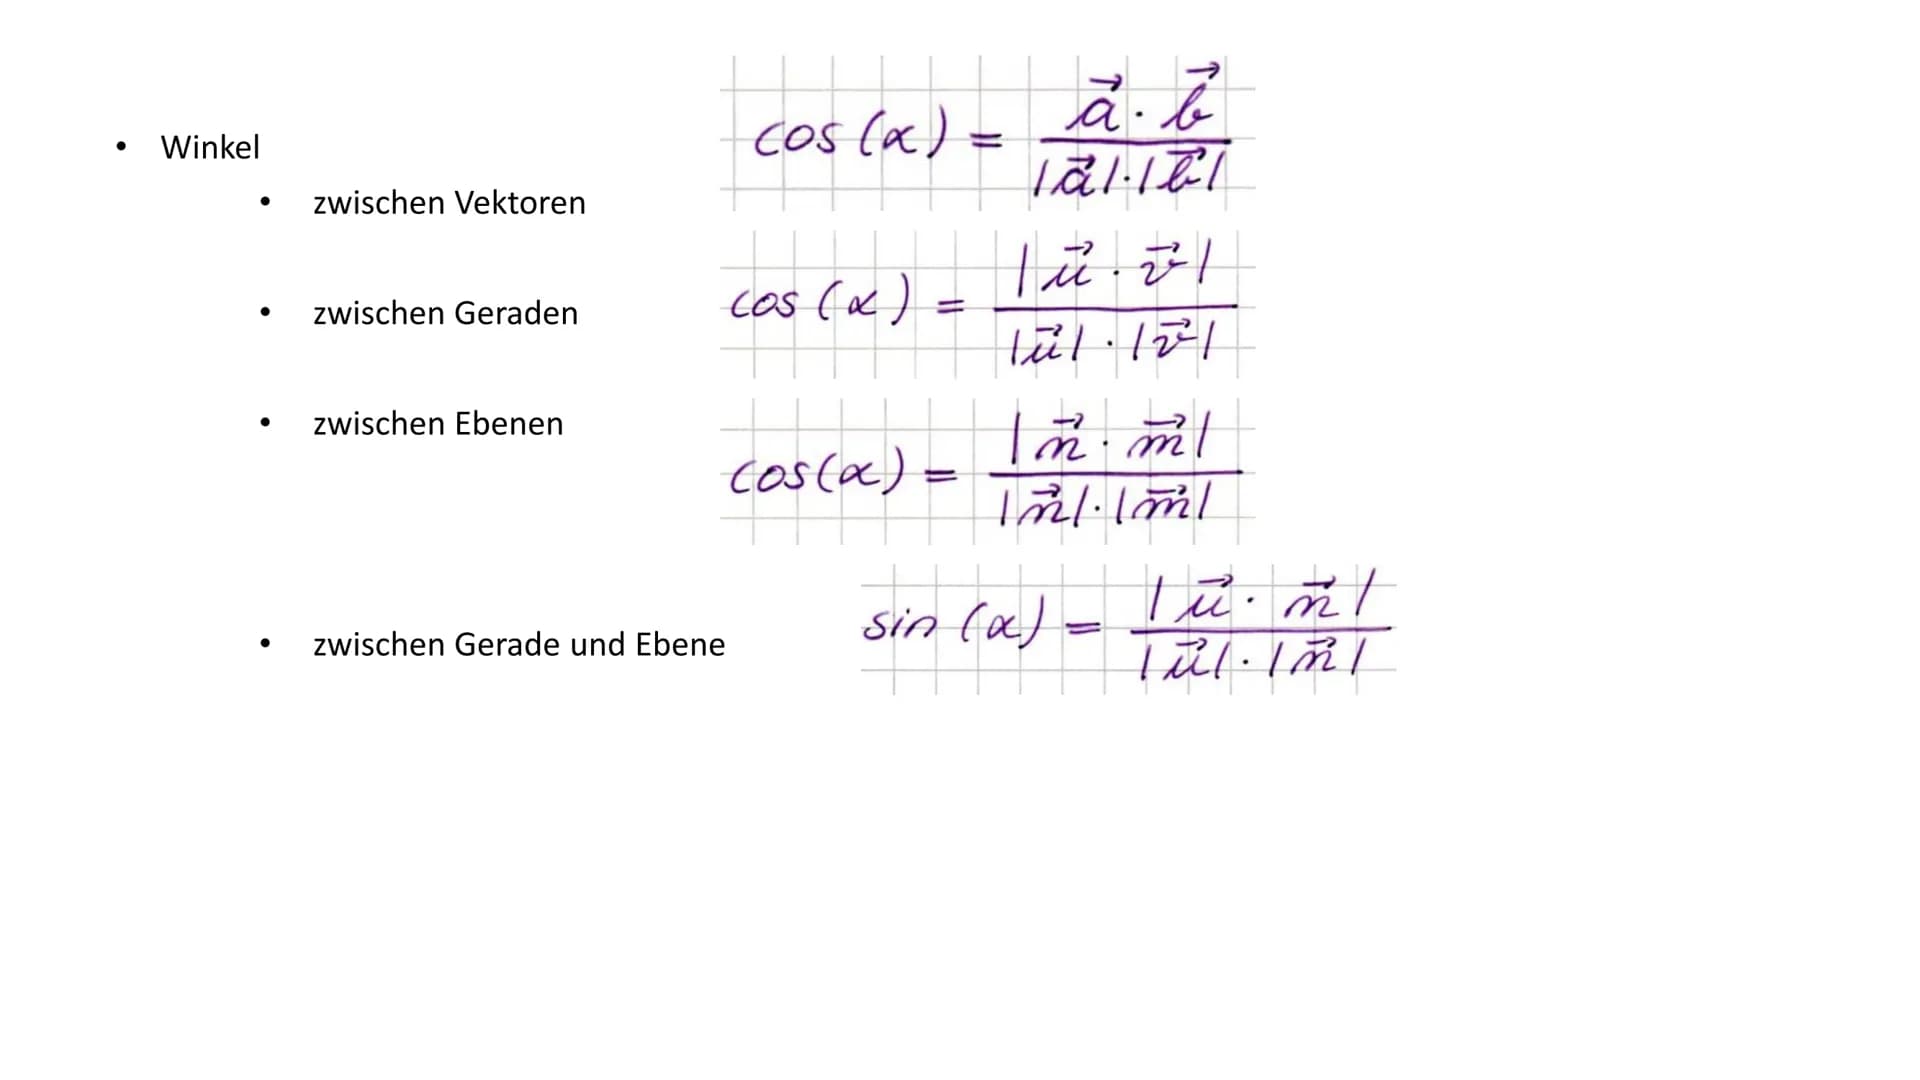 • Winkel
cos(α) = (a⃗ · b⃗) / (|a⃗| · |b⃗|)
• zwischen Vektoren
• zwischen Geraden
cos(α) = |u⃗ · v⃗| / (|u⃗| · |v⃗|)
• zwischen Ebenen
cos(α) = |n⃗ · m⃗| / (|n⃗| · |m⃗|)
• zwischen Gerade und Ebene
sin(α) = |u⃗ · n⃗| / (|u⃗| · |n⃗|)